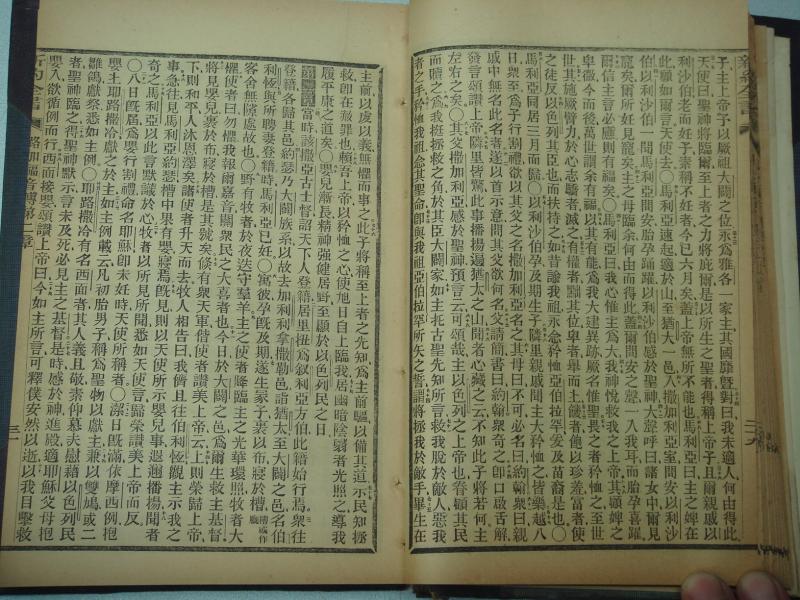 新約全書
子主上帝予以厥祖大闢之位永爲雅各一家主其國靡曁對曰我未適人何由得此
天使曰聖神將臨爾至上者之力將庇爾是以所生之聖者得稱上帝子且爾親戚以
利沙伯老而妊子素稱不妊者今已六月矣蓋上帝無所不能也馬利亞曰主之婢在
此願如爾言天使去○馬利亞速起適於山至猶大一邑入撒加利亞室問安以利沙
伯以利沙伯一聞馬利亞問安胎孕踊躍以利沙伯感於聖神大聲呼曰諸女中爾見
寵矣爾所妊見寵矣主之母臨余何由而得此蓋爾問安之聲一入我耳而胎孕喜躍
爾信主言必應則有福矣○馬利亞曰我心惟主爲大我神悅救我之上帝其顧婢之
卑微今而後萬世謂余有福以其有能爲我大建異跡厥名惟聖畏之者矜恤之至世
世其施厥臂力於心志驕者滅之有權者黜其位卑者舉而上饑者飽以珍羞富者使
之徒反以色列其臣也而扶持之如昔諭我祖永念矜恤亞伯拉罕爰及苗裔是也○
馬利亞同居三月而歸○以利沙伯孕及期生子隣里親戚聞主大矜恤之皆樂越八
日衆至爲子行割禮欲以其父之名撒加利亞名之其母曰不可必名曰約翰衆曰親
戚中無名此名者遂以首示意問其父欲何名父請簡書曰約翰衆奇之卽口啟舌解
發言頌讚上帝隣里皆驚此事播揚遍猶太之山聞者心藏之云不知此子將若何主
左右之矣○其父撒加利亞感於聖神預言云可頌哉主以色列之上帝也眷顧其民
而贖之爲我挺拯救之角於其臣大闢家如主托古聖先知所言救我脫於敵人惡我
者之手矜恤我祖念其聖命卽與我祖亞伯拉罕所矢之誓謂將拯我於敵手畢生在
主前以虔以義無懼而事之此子將稱至上者之先知爲主前驅以備其道示民知拯
救卽在赦罪也賴吾上帝以矜恤之心使旭日自上臨我居幽暗陰翳者光照之導我
履平康之道矣○嬰兒漸長精神強健居野至顯於以色列民之日
第二章 當時該撒亞古士督詔天下人登籍居里扭爲叙利亞方伯此籍始行焉衆往
登籍各歸其邑約瑟乃大闢族系以故去加利利拿撒勒邑詣猶太至大闢之邑名伯
利恆與所聘妻登籍時馬利亞已妊○寓彼孕旣及期遂生冢子裹以布寢於槽
客舍無隙處故也○野有牧者於夜迭守羣羊主之使者降臨主之光華環照牧者大
懼使者曰勿懼我報爾嘉音關衆民之大喜者也今日於大闢之邑爲爾生救主基督
將見嬰兒裹於布寢於槽是其號矣倐有衆天軍偕使者讚美上帝云上則榮歸上帝
下則和平人沐恩澤矣諸使者升天而去牧人相告曰我儕且往伯利恆觀主示我之
事急往見馬利亞約瑟槽中果有嬰寢焉旣見則以天使所示嬰兒事遐邇播揚聞者
奇之馬利亞以此言默識於心牧者以所見所聞悉如天使言歸榮讚美上帝而反
○八日旣屆爲嬰行割禮命名耶穌卽未妊時天使所稱者○潔日旣滿依摩西例抱
嬰上耶路撒冷獻之於主如主例載云凡初胎男子稱爲聖物以獻主兼以雙鳩或二
雛鴿獻祭悉如主例○耶路撒冷有名西面者其人義且敬素仰慕夫慰藉以色列民
者聖神臨之得聖神默示言未及死必見主之基督是時感於神進殿適耶穌父母抱
嬰入欲循例而行西面接嬰頌讚上帝曰今如主所言可釋僕安然以逝以我目擊救
新約全書 路加福音傳第二章